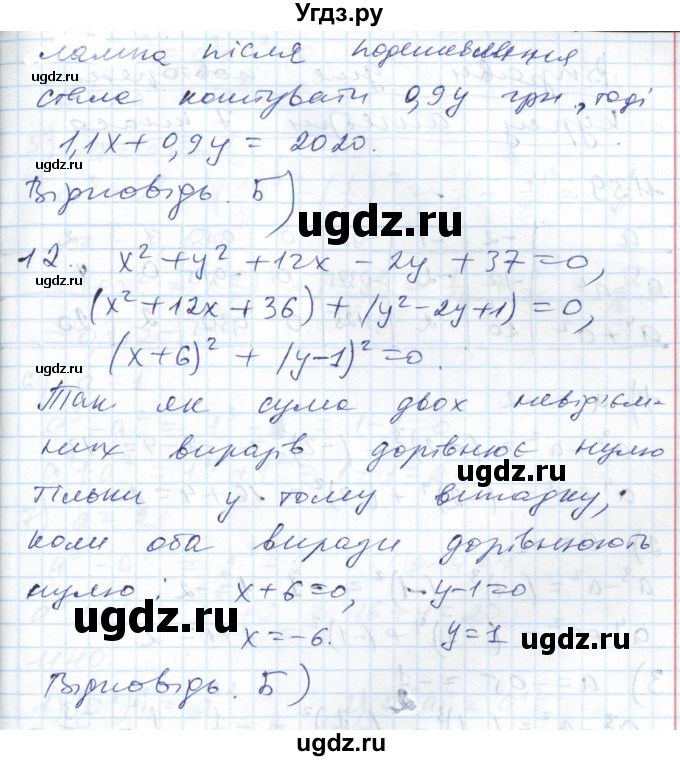 Угдз.ру
лампа після подешевлення
стала коштувати 0,9y грн, тоді
1,1x + 0,9y = 2020.
Відповідь. Б)
12. x² + y² + 12x - 2y + 37 = 0,
(x² + 12x + 36) + (y² - 2y + 1) = 0,
(x + 6)² + (y - 1)² = 0.
Так як сума двох невід'єм-
них виразів дорівнює нулю
тільки у тому випадку,
коли оба вирази дорівнюють
нулю: x + 6 = 0, y - 1 = 0
x = -6. y = 1
Відповідь. Б)
ugdz.ru
ugdz.ru
ugdz.ru
ugdz.ru
ugdz.ru
ugdz.ru
ugdz.ru
ugdz.ru
ugdz.ru
ugdz.ru